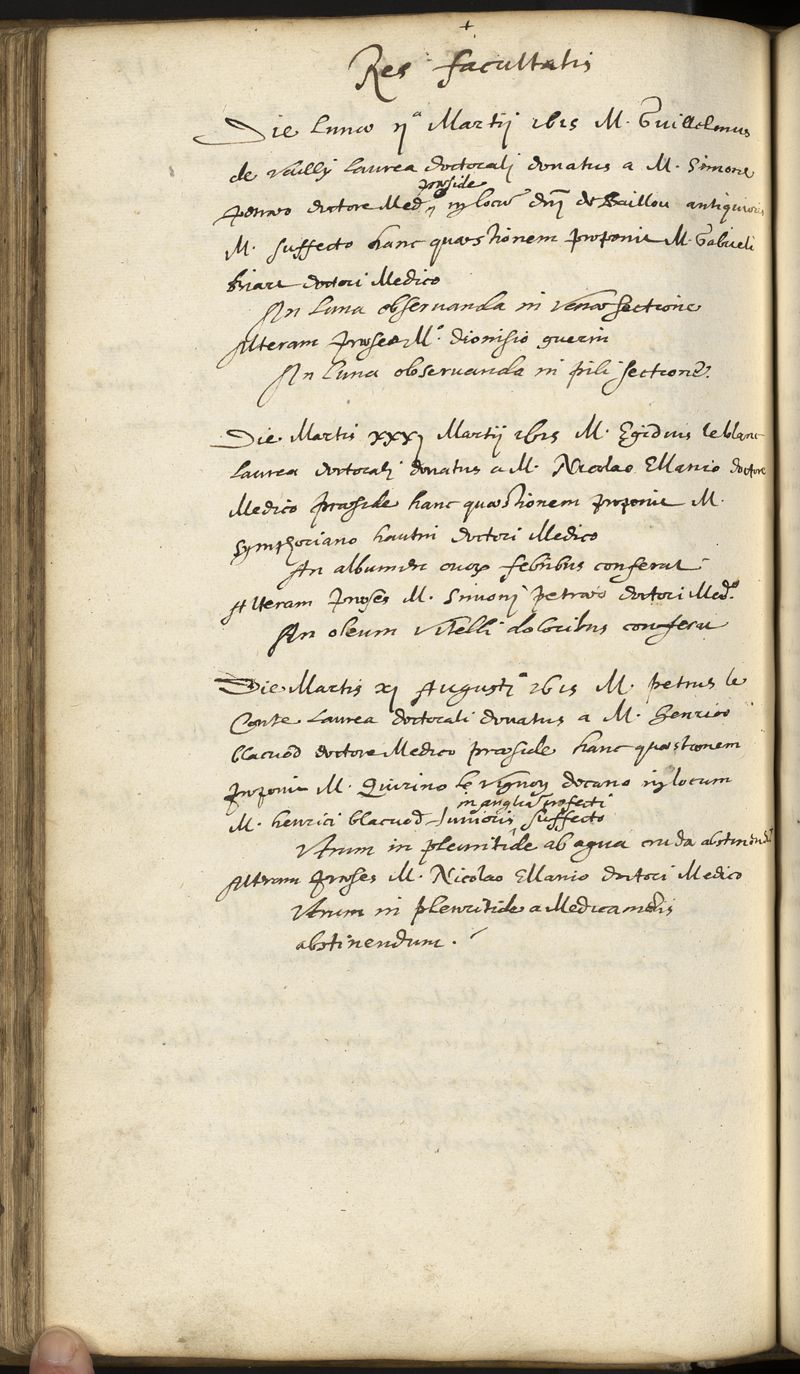 +
Res facultatis
Die lunæ ij^a Martij 1615 M. Guillelmus
de Vailly laurea doctorali donatus a M. Simone
præside
petræo doctore Med° in locū dnj de Baillou antiquioris
M. suffecto hanc quæstionem proponit M. Gabrieli
biart doctori Medico
An luna observanda in venæ sectione
Alteram præses M° dionisio guerin
An luna observanda in pili sectione.
Die Martis xxxj Martij 1615 M. Egidius le blanc
laurea doctoralj donatus a M. Nicolao Ellanio doctore
Medico præside hanc quæstionem proponit M.
Symphoriano hautin doctori Medico
An albumen ovor febribus conferat
Alteram præses M. Simonj petræo doctori Med°
An oleum vitelli doloribus conferat
Die Martis xj Augusti 1615 M. petrus le
Conte laurea doctorali donatus a M. henrico
blacuod doctore Medico præside hanc quæstionem
proponit M. Quirino le vignon decano in locum
in angliā profecti
M. henrici blacuod Junioris suffecto
Utrum in pleuritide ab aqua cruda abstinendū
Alteram præses M. Nicolao Ellanio doctori Medico
Utrum in pleuritide a Medicamētis
abstinendum.